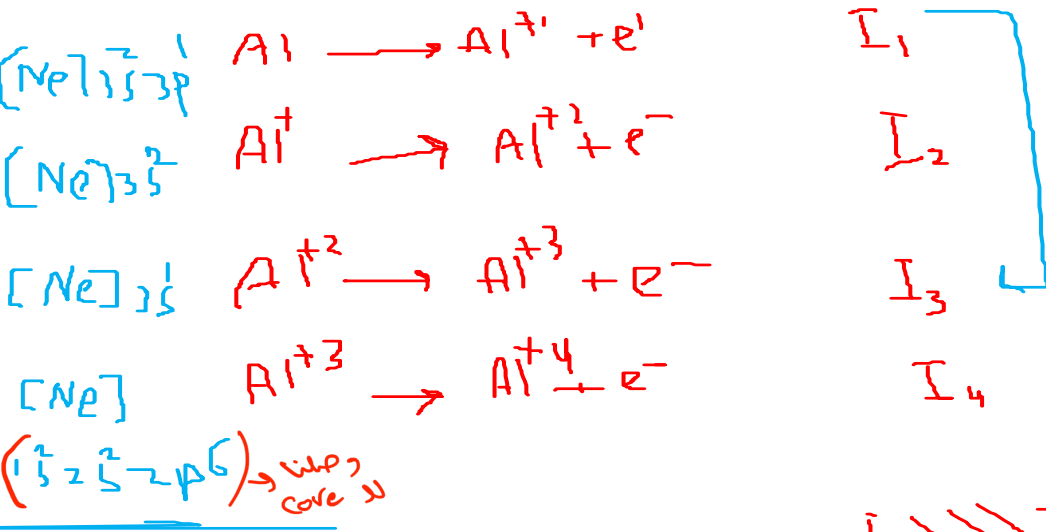 [Ne]3s² 3p¹ Al → Al⁺¹ + e¹ I₁
[Ne]3s² Al⁺ → Al⁺² + e⁻ I₂
[Ne]3s¹ Al⁺² → Al⁺³ + e⁻ I₃
[Ne] Al⁺³ → Al⁺⁴ + e⁻ I₄
(1s² 2s² 2p⁶) →
core